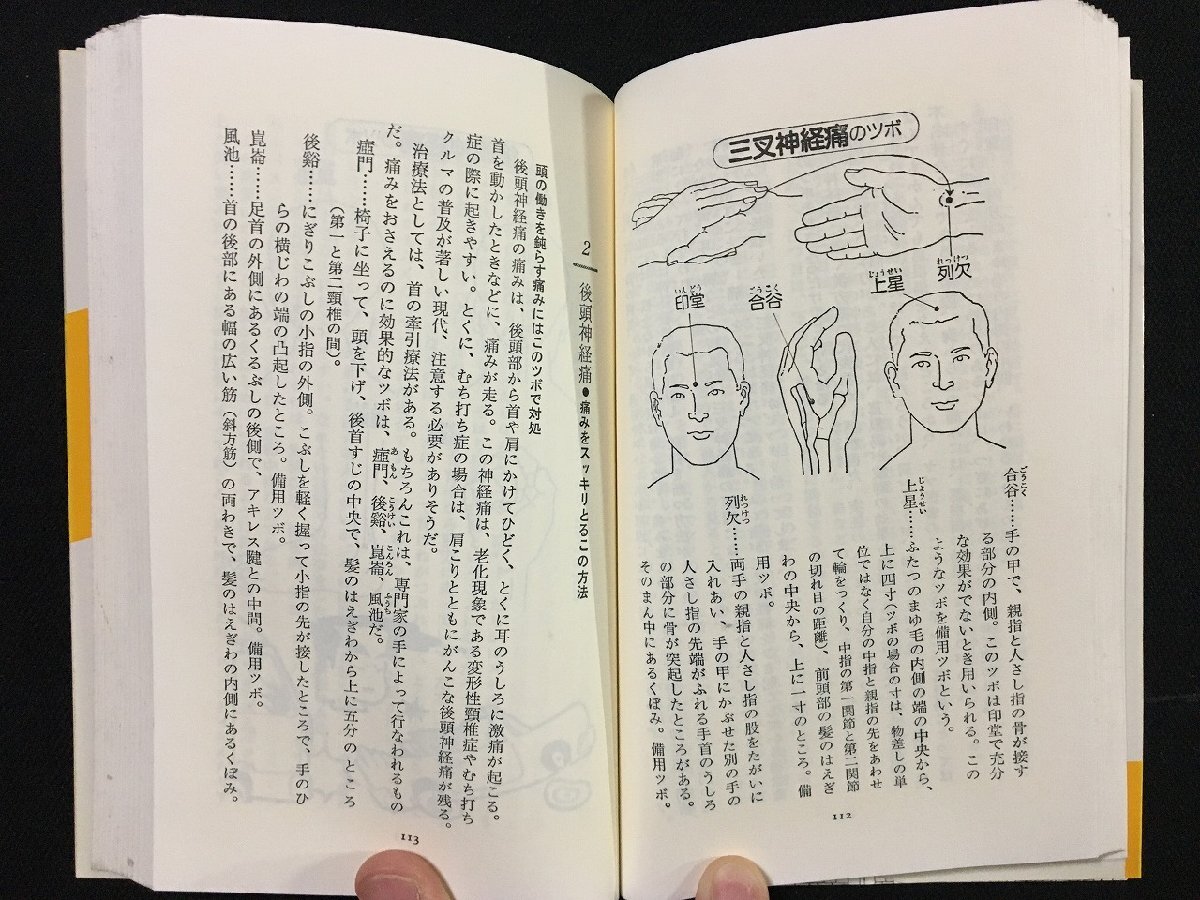 三叉神経痛のツボ
列欠
れっけつ
上星
じょうせい
合谷
ごうこく
印堂
いんどう
合谷……手の甲で、親指と人さし指の骨が接す
ごうこく
る部分の内側。このツボは印堂で充分
な効果がでないとき用いられる。この
ようなツボを備用ツボという。
上星……ふたつのまゆ毛の内側の端の中央から、
じょうせい
上に四寸(ツボの場合の寸は、物差しの単
位ではなく自分の中指と親指の先をあわせ
て輪をつくり、中指の第一関節と第二関節
の切れ目の距離)、前頭部の髪のはえぎ
わの中央から、上に一寸のところ。備
用ツボ。
列欠……両手の親指と人さし指の股をたがいに
れっけつ
入れあい、手の甲にかぶせた別の手の
人さし指の先端がふれる手首のうしろ
の部分に骨が突起したところがある。
そのまん中にあるくぼみ。備用ツボ。
112
2 後頭神経痛●痛みをスッキリとるこの方法
頭の働きを鈍らす痛みにはこのツボで対処
後頭神経痛の痛みは、後頭部から首や肩にかけてひどく、とくに耳のうしろに激痛が起こる。
首を動かしたときなどに、痛みが走る。この神経痛は、老化現象である変形性頸椎症やむち打ち
症の際に起きやすい。とくに、むち打ち症の場合は、肩こりとともにがんこな後頭神経痛が残る。
クルマの普及が著しい現代、注意する必要がありそうだ。
治療法としては、首の牽引療法がある。もちろんこれは、専門家の手によって行なわれるもの
だ。痛みをおさえるのに効果的なツボは、瘂門、後谿、崑崙、風池だ。
あもん こうけい こんろん ふうち
瘂門……椅子に坐って、頭を下げ、後首すじの中央で、髪のはえぎわから上に五分のところ
(第一と第二頸椎の間)。
後谿……にぎりこぶしの小指の外側。こぶしを軽く握って小指の先が接したところで、手のひ
らの横じわの端の凸起したところ。備用ツボ。
崑崙……足首の外側にあるくるぶしの後側で、アキレス腱との中間。備用ツボ。
風池……首の後部にある幅の広い筋(斜方筋)の両わきで、髪のはえぎわの内側にあるくぼみ。
113